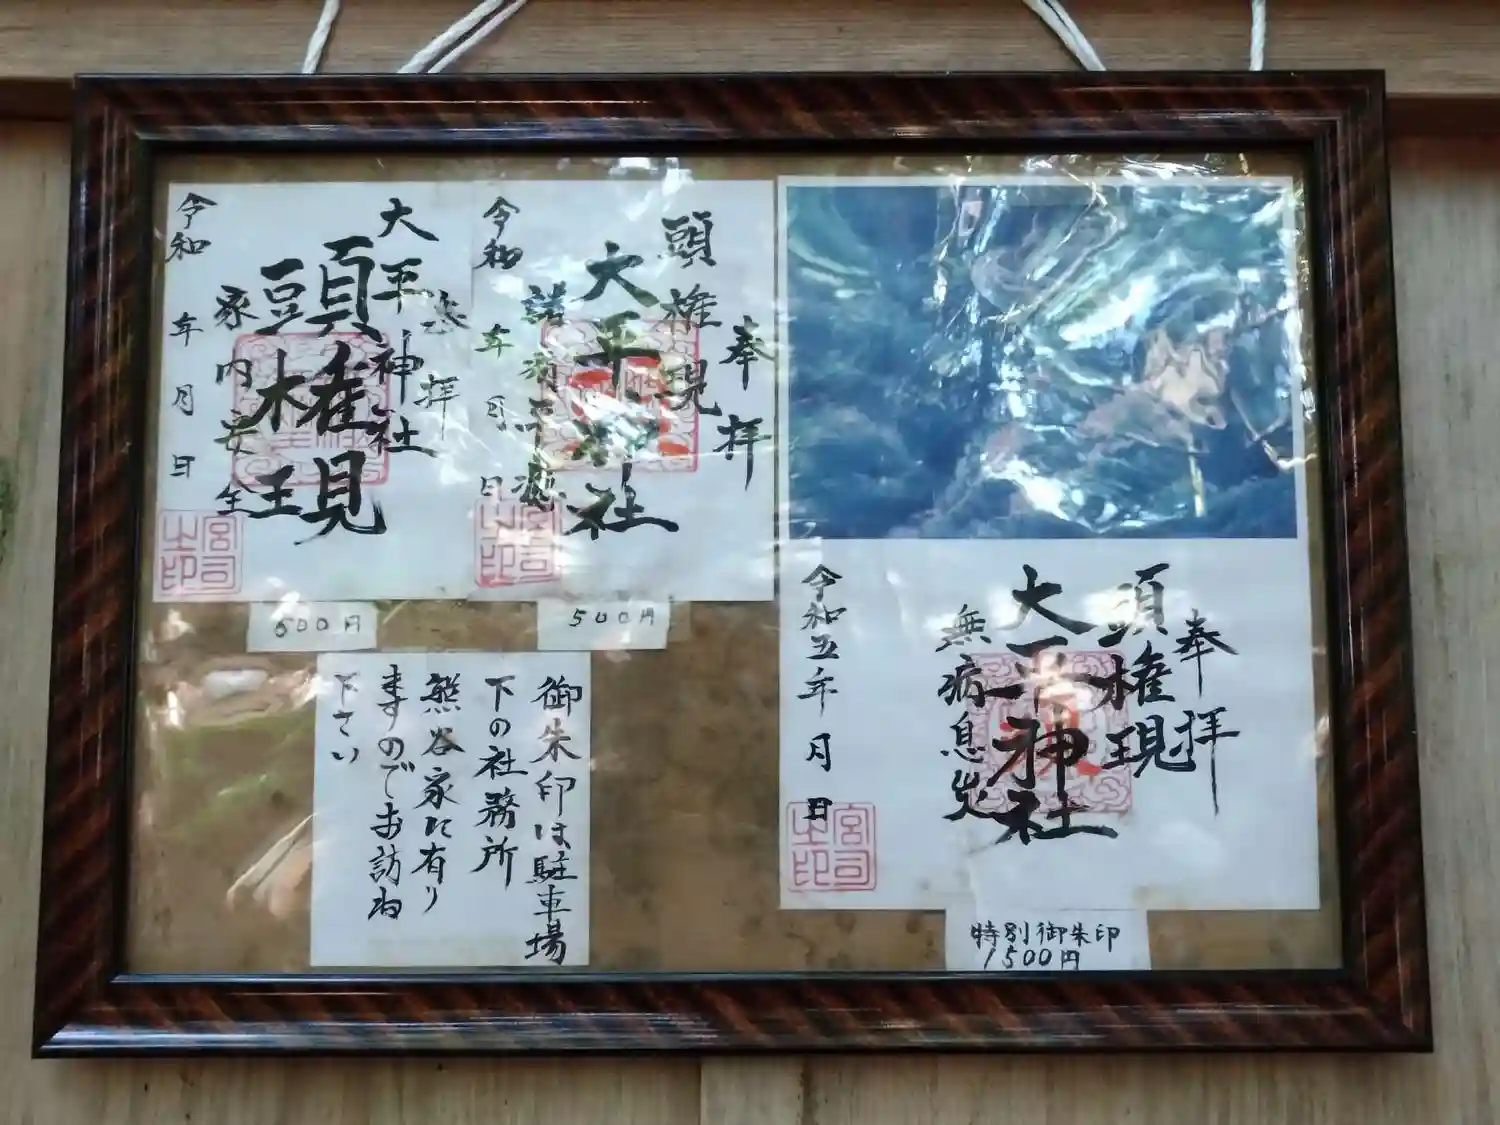 奉拝
頭権現
大平神社
無病息災
令和五年 月 日
宮司之印
特別御朱印
1500円
奉拝
頭権現
大平神社
諸病平癒
令和 年 月 日
宮司之印
500円
奉拝
大平神社
頭権現
家内安全
令和 年 月 日
宮司之印
500円
御朱印は駐車場
下の社務所
熊谷家に有り
ますのでお訪ね
下さい